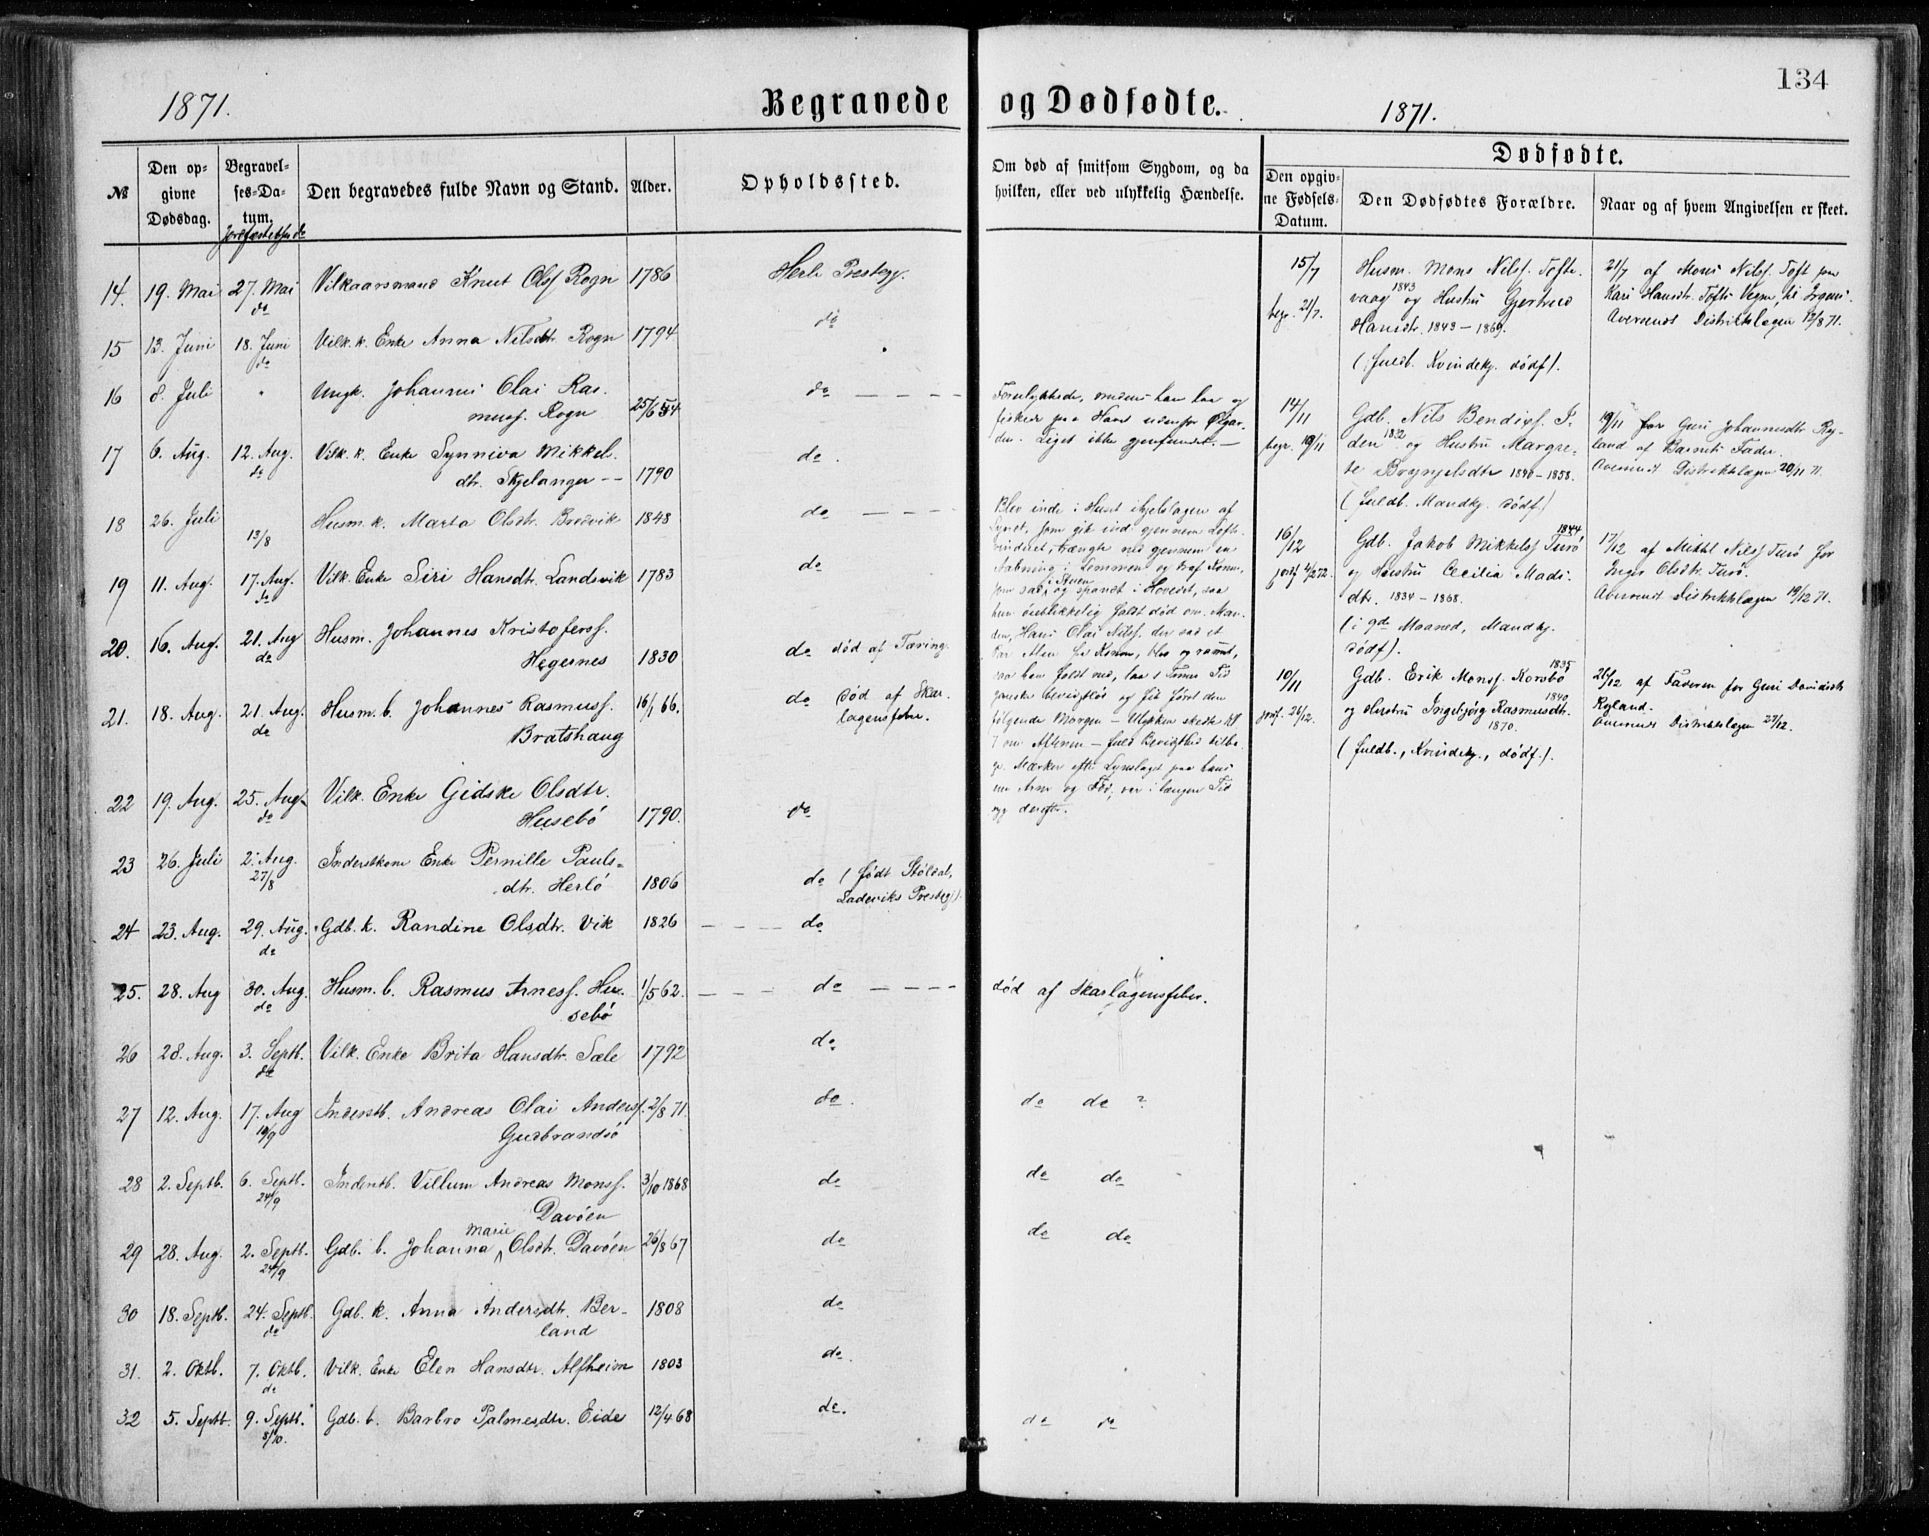 134
1871.
Begravede og Dødfødte.
1871.
№
Den opgivne Dødsdag.
Begravelses-Datum.
Jordfæstelsen do
Den begravedes fulde Navn og Stand.
Alder.
Opholdssted.
Om død af smitsom Sygdom, og da hvilken, eller ved ulykkelig Hændelse.
Dødfødte.
Den opgivne Fødsels-Datum.
Den Dødfødtes Forældre.
Naar og af hvem Angivelsen er skeet.
14. 19. Mai 27. Mai Vilkaarsmand Knut Olss. Rogn 1786 Herlø Prestegj.
do
15 13. Juni 18. Juni Vilk. k. Enke Anna Nilsdtr. Rogn 1794 do
do
16 8. Juli " Ungk. Johannes Olai Ras-
muss. Rogn 25/6 54 do — — — —
Forulykkede, medens han laa og
fiskede paa Havet udenfor Øigar-
den. Liget ikke gjenfundet. —
17 6. Aug. 12. Aug. Vilk. k. Enke Synniva Mikkel-
do dtr. Skjelanger -- 1790 do.
18 26. Juli 13/8 Husm. k. Marta Olsdtr. Bredvik 1848 do — — — —
Blev inde i Huset ihjelslagen af
Lynet, som gik ind gjennem Loft-
vinduet, trængte ned gjennem en
Aabning i Lemmen og traf Konen,
som sad i Stuen og spandt i Hovedet, saa
hun øieblikkelig faldt død om. Man-
den, Hans Olai Nilss. der sad et
Par Alen fra Konen, blev og ramt,
saa han faldt ned, laa 1 Times Tid
ganske bevidstløs og fik først den
følgende Morgen — Ulykken skede Kl
7 om Aftenen — fuld Bevidsthed tilba-
ge. Mærker efter Lynslaget paa hans
ene Arm og Fod, var i længere Tid
syg derefter.
19 11. Aug. 17. Aug. Vilk. Enke Siri Hansdtr. Landsvik 1783 do
do
20. 16. Aug. 21. Aug Husm. Johannes Kristoferss.
do Hegernes 1830 do død af Tæring.
21. 18. Aug. 21. Aug. Husm. b. Johannes Rasmuss. 16/1 66. do død af Skar-
do Bratshaug lagensfeber.
22 19. Aug. 25. Aug. Vilk. Enke Gidske Olsdtr.
do Husebø 1790. do
23 26. Juli 2. Aug. Inderstkone Enke Pernille Pauls-
27/8 dtr. Herlø 1806 do (født Støldal,
Ladeviks Prestegj).
24 23. Aug. 29. Aug. Gdb. k. Randine Olsdtr. Vik 1826 — — — do
do
25. 28. Aug 30. Aug. Husm. b. Rasmus Arness. Hu- 1/5 62. — — — do — — — — død af Skarlagensfeber.
do sebø
26 28. Aug. 3. Septb. Vilk. Enke Brita Hansdtr. Sæle 1792 do
do
27 12. Aug. 17. Aug Inderstb. Andreas Olai Anderss. 2/8 71. do. do do ?
10/9 Gudbrandsø
28 2. Septb. 6. Septb. Inderstb. Villum Andreas Monss. 3/10 1868 do do do
24/9 Davøen
29 28. Aug. 2. Septb. Gdb. b. Johanna Marie Olsdtr. Davøen 26/8 67 do do do
24/9
30 18. Septb. 24. Septb. Gdb. k. Anna Andersdtr. Ber- 1808 do
do land
31. 2. Oktb. 7. Oktb. Vilk. Enke Elen Hansdtr. Alfheim 1803 do.
do
32 5. Septb. 9. Septb. Gdb. b. Barbro Palmesdtr. Eide 12/4 68 do. do do
8/10.
15/7
begr. 21/7.
Husm. Mons Nilss. Tofte-
vaag 1843 og Hustru Gjertrud
Hansdtr. 1843 – 1869.
(fuldb. Kvindekj. dødf).
21/7 af Mons Nilss. Toft paa
Kari Hansdtr. Tofts Vegne
Distriktslægen 12/8 71.
14/11
begr. 19/11
Gdb. Nils Bendixs. I-
den 1832 og Hustru Margre-
te Brynjelsdtr 1830 – 1858.
(fuldb. Mandkj. dødf)
19/11 for Guri Johannesdtr Ry-
land af Barnets Fader.
Distriktslægen 20/11 71.
16/12
jordf 4/2 72.
Gdb. Jakob Mikkelss Turø 1844
og Hustru Cecilia Mads-
dtr. 1834 – 1868.
(i 9de Maaned, Mandkj.
dødf).
17/12 af Mikkel Nilss Turø for
Inger Olsdtr. Turø.
Distriktslægen 19/12 71.
10/11
jordf. 26/12.
Gdb. Erik Monss. Korsbø 1835
og Hustru Ingebjørg Rasmusdtr. 1840
1870.
(fuldb., Kvindekj., dødf.).
26/12 af Faderen for Guri Davidsdtr
Ryland.
Distriktslægen 27/12.